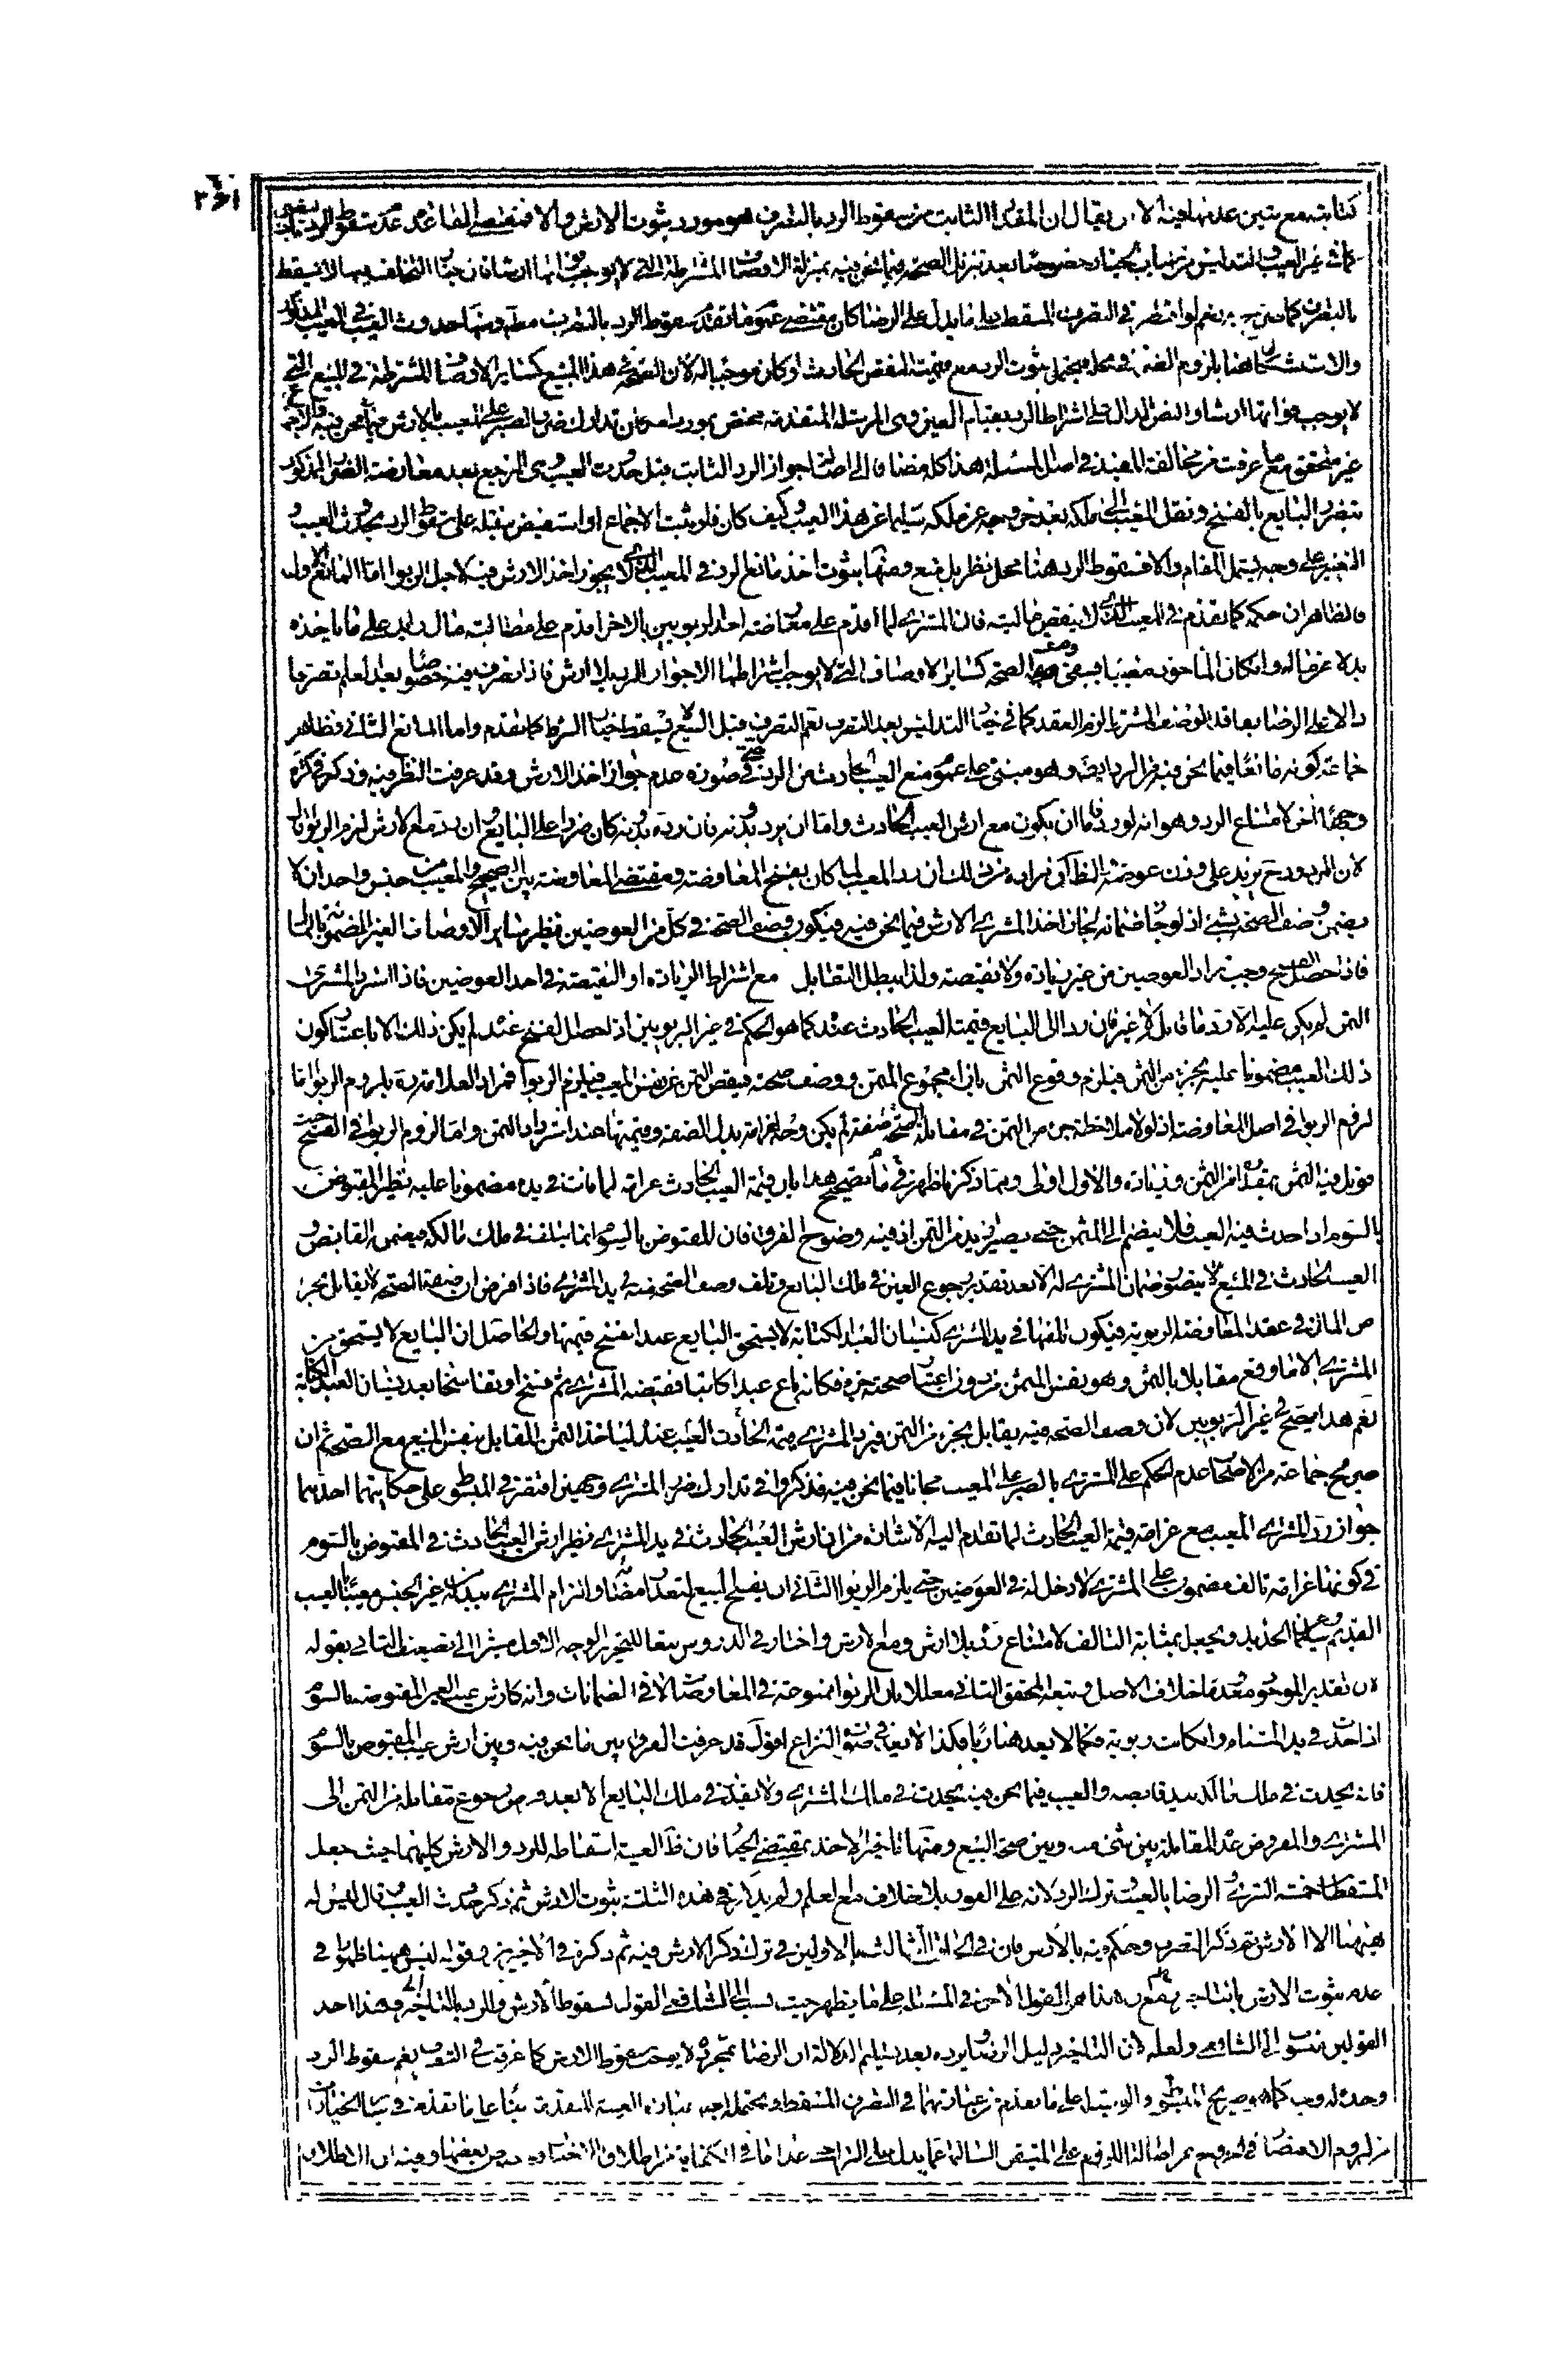 ٣٦١
كتابته مع تبين عدمها فيه الا ان يقال ان المقدار الثابت من سقوط الرد بالتصرف هو مورد ثبوت الارش والا فمقتضى القاعدة عدم سقوط الرد
كما في غير العيب والتدليس من خيار خصوصا بعد تنزيل الصحة فيما نحن فيه بمنزلة الاوصاف المشترطة التي لا يوجب فواتها ارشا فان خيار التخلف فيها لا يسقط
بالتصرف كما نعم لو اقتصر في التصرف المسقط على ما يدل على الرضا كان مقتضى عموم ما تقدم سقوط الرد بالتصرف مطلقا ومنها حدوث العيب في المعيب المذكور
والاستشكال هنا بلزوم الضرر في محله فيحتمل ثبوت الرد مع قيمة النقص الحادث لو كان موجبا له لان الصحة في هذا المبيع كسائر الاوصاف المشترطة في المبيع التي
لا يوجب فواتها ارشا والنص الدال على اشتراط الرد بقيام العين وهي المرسلة المتقدمة مختص بمورد امكان تدارك ضرر الصبر على المعيب بالارش فيما نحن فيه والاجماع
غير متحقق مع ما عرفت من مخالفة المفيد في اصل المسئلة هذا كله مضافا الى اصالة جواز الرد الثابت قبل حدوث العيب وهي المرجع بعد معارضة الضرر المذكور
بتضرر البايع بالفسخ ونقل المعيب الى ملكه بعد خروجه عن ملكه سليما عن هذا العيب وكيف كان فلو ثبت الاجماع او استفيض بنقله على سقوط الرد بحدوث العيب و
التغيير على وجه يشمل المقام والا فسقوط الرد هنا محل نظر بل منع ومنها ثبوت احد مانعي الرد في المعيب الذي لا يجوز اخذ الارش فيه لاجل الربوا اما المانع الاول
فالظاهر ان حكمه كما تقدم في المعيب الذي لا ينقص ماليته فان المشتري لما اقدم على معاوضة احد الربويين بالاخر اقدم على عدم مطالبة مال زايد على ما ياخذه
بدلا عن ماله وان كان الماخوذ معيبا فيبقى وصف الصحة كسائر الاوصاف التي لا يوجب اشتراطها الا جواز الرد بلا ارش فاذا تصرف فيه خصوصا بعد العلم تصرفا
دالا على الرضا بفاقد الوصف المشترط لزم العقد كما في خيار التدليس بعد التصرف نعم التصرف قبل العلم لا يسقط خيار الشرط كما تقدم واما المانع الثاني فظاهر
جماعة كونه مانعا فيما نحن فيه من الرد ايضا وهو مبني على عموم منع العيب الحادث من الرد حتى في صورة عدم جواز اخذ الارش وقد عرفت النظر فيه وذكر في كره
وجها اخر لامتناع الرد وهو انه لو رد فاما ان يكون مع ارش العيب الحادث واما ان يرد بدونه فان رده بدونه كان ضررا على البايع وان رد مع الارش لزم الربوا قال
لان المردود ح يزيد على وزن عوضه والظ ان مراده من ذلك ان رد المعيب لما كان بفسخ المعاوضة ومقتضى المعاوضة بين الصحيح والمعيب من جنس واحد ان لا
يضمن وصف الصحة بشئ اذ لو جاز ضمانه لجاز اخذ المشتري الارش فيما نحن فيه فيكون وصف الصحة في كل من العوضين نظير ساير الاوصاف الغير المضمونة بالمال
فاذا حصل الفسخ وجب تراد العوضين من غير زيادة ولا نقيصة ولذا يبطل التقايل مع اشتراط الزيادة او النقيصة في احد العوضين فاذا استرد المشتري
الثمن لم يكن عليه الا رد ما قابله لا غير فان رد الى البايع قيمة العيب الحادث عنده كما هو الحكم في غير الربويين اذا حصل الفسخ عنده لم يكن ذلك الا باعتبار كون
ذلك العيب مضمونا عليه بجزء من الثمن فيلزم وقوع الثمن بازاء مجموع المثمن ووصف صحته فينقص الثمن عن نفس المعيب فيلزم الربوا فمراد العلامة ره بلزوم الربوا اما
لزوم الربوا في اصل المعاوضة اذ لولا ملاحظة جزء من الثمن في مقابلة صفة الصحة لم يكن وجه لغرامة بدل الصفة وقيمتها عند استرداد الثمن واما لزوم الربوا في الفسخ حيث
قوبل فيه الثمن بمقداره من المثمن وزيادة والاول اولى ومما ذكرنا ظهر ما في تصحيح هذا بان قيمة العيب الحادث غرامة لما فات في يده مضمونا عليه نظير المقبوض
بالسوم اذا حدث فيه العيب فلا ينضم الى المثمن حتى يصير ازيد من الثمن اذ فيه وضوح الفرق فان المقبوض بالسوم انما يتلف في ملك مالكه فيضمنه القابض و
العيب الحادث في المبيع لا يتصور ضمان المشتري له الا بعد تقدير رجوع العين في ملك البايع وتلف وصف الصحة منه في يد المشتري فاذا فرض ان صفة الصحة لا يقابل بجزء
من المال في عقد المعاوضة الربوية فيكون تلفها في يد المشتري كنسيان العبد الكتابة لا يستحق البايع عند الفسخ قيمتها والحاصل ان البايع لا يستحق من
المشتري الا ما وقع مقابلا بالثمن وهو نفس المثمن من دون اعتبار صحته جزء فكانه باع عبدا كاتبا فقبضه المشتري ثم فسخ او تفاسخا بعد نسيان العبد الكتابة
نعم هذا يصح في غير الربويين لان وصف الصحة فيه يقابل بجزء من الثمن فيرد المشتري قيمة الحادث عنده لياخذ الثمن المقابل لنفس المبيع مع الصحة ثم ان
صريح جماعة من الاصحاب عدم الحكم على المشتري بالصبر على المعيب مجانا فيما نحن فيه فذكروا في تدارك ضرر المشتري وجهين اقتصر في المبسوط على حكايتهما احدهما
جواز رد المشتري المعيب مع غرامة قيمة العيب الحادث لما تقدم اليه الاشارة من ان ارش العيب الحادث في يد المشتري نظير ارش العيب الحادث في المقبوض بالسوم
في كونهما غرامة تالف مضمون على المشتري لا دخل له في العوضين حتى يلزم الربوا الثاني ان يفسخ البيع لتعذر امضائه والزام المشتري ببدله من غير الجنس معيبا بالعيب
القديم وسليما عن الجديد ويجعل بمثابة التالف لامتناع رده بلا ارش ومع الارش واختار في الدروس تبعا للتحرير الوجه الاول مشيرا الى تضعيف الثاني بقوله
لان تقدير الموجود معدوما خلاف الاصل وتبعه المحقق الثاني معللا بان الربوا ممنوعة في المعاوضات لا في الضمانات وانه كارش عيب العين المقبوضة بالسوم
اذا حدث في يد المستام وان كانت ربوية فكما لا يعد هنا ربا فكذا لا يعد في صورة النزاع اقول قد عرفت الفرق بين ما نحن فيه وبين ارش عيب المقبوض بالسوم
فانه يحدث في ملك مالكه بيد قابضه والعيب فيما نحن فيه يحدث في ملك المشتري ولا يقدر في ملك البايع الا بعد فرض رجوع مقابله من الثمن الى
المشتري والمفروض عدم المقابلة بين شئ منه وبين صحة المبيع ومنها تاخير الاخذ بمقتضى الخيار فان ظ الغنية اسقاطه للرد والارش كليهما حيث جعل
المسقطات خمسة التبري والرضا بالعيب وترك الرد لانه على الفور بلا خلاف مع العلم ولم يذكر في هذه الثلثة ثبوت الارش ثم ذكر حدوث العيب وقال ليس له
هيهنا الا الارش ثم ذكر التصرف وحكم فيه بالارش فان في الاولين في ترك ذكر الارش فيه ثم ذكره في الاخيرين وقوله ليس هيهنا ظهورا في
عدم ثبوت الارش هذا هو القول الاخر في المسئلة على ما يظهر حيث نسب الى الشافعي القول بسقوط الارش والرد بالتاخير وهذا احد
القولين منسوب الى الشافعي ولعله لان التاخير دليل الرضا ويرده بعد تسليم الدلالة ان الرضا بمجرده لا يوجب سقوط الارش كما عرفت في التصرف نعم سقوط الرد
وحده له وجه كما هو صريح المبسوط والوسيلة على ما تقدم من عبارتهما في التصرف المسقط ويحتمله ايضا عبارة الغنية المتقدمة بناء على ما تقدم في ساير الخيارات
من لزوم الاقتصار في على المتيقن السالمة عما يدل على التراخي عدا ما في الكفاية من اطلاق الاخبار وخصوص بعضها وفيه ان الاطلاق